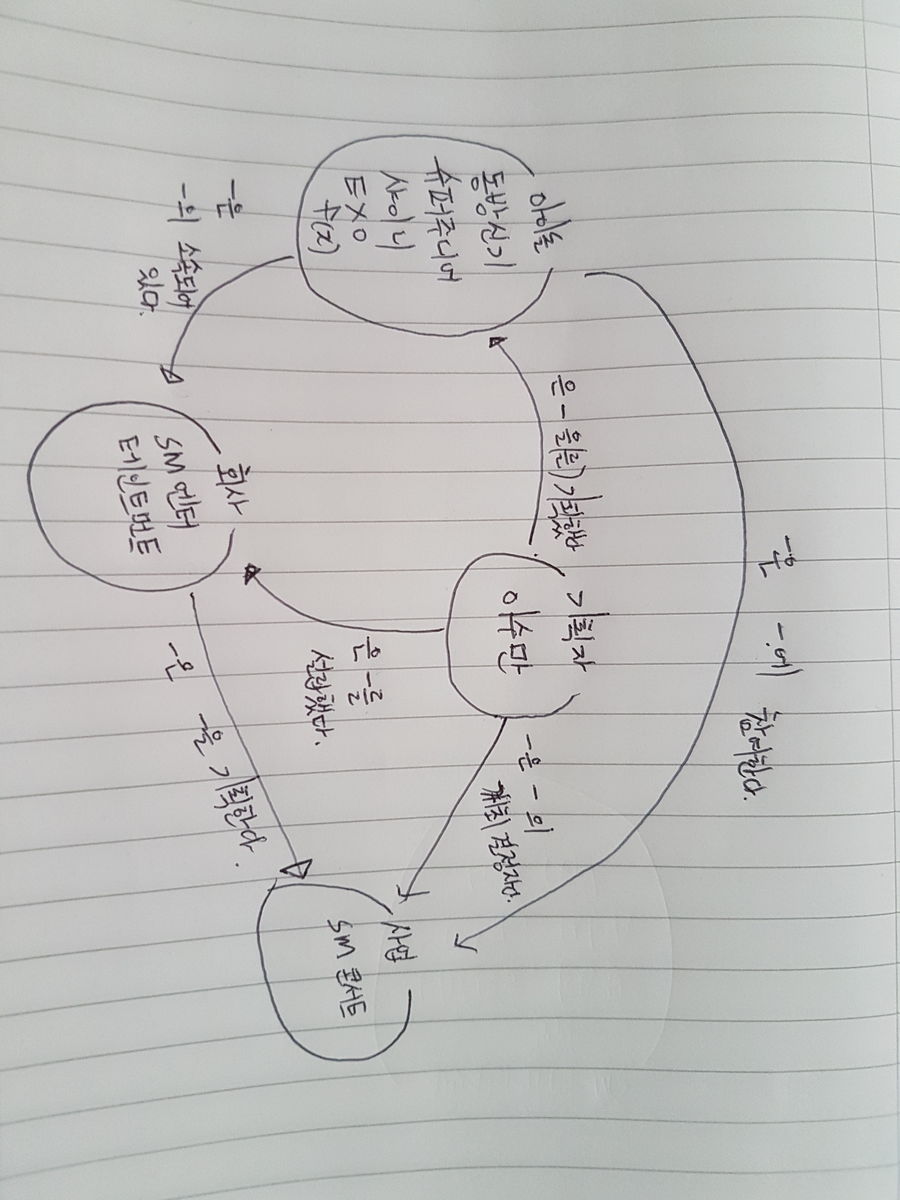 -은 -에 참여한다.
아이돌
동방신기
슈퍼주니어
샤이니
EXO
f(x)
은 - 을(를) 기획했다
기획자
이수만
-은 -의
개최 결정자다.
사업
SM 콘서트
은 -를
설립했다.
-은
-의 소속되어
있다.
회사
SM 엔터
테인트먼트
-은 -을 기획한다.